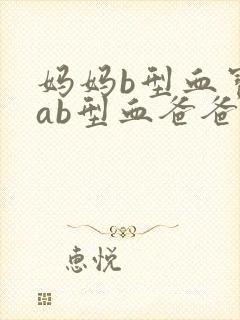 妈妈b型血
ab型血爸爸
惠悦